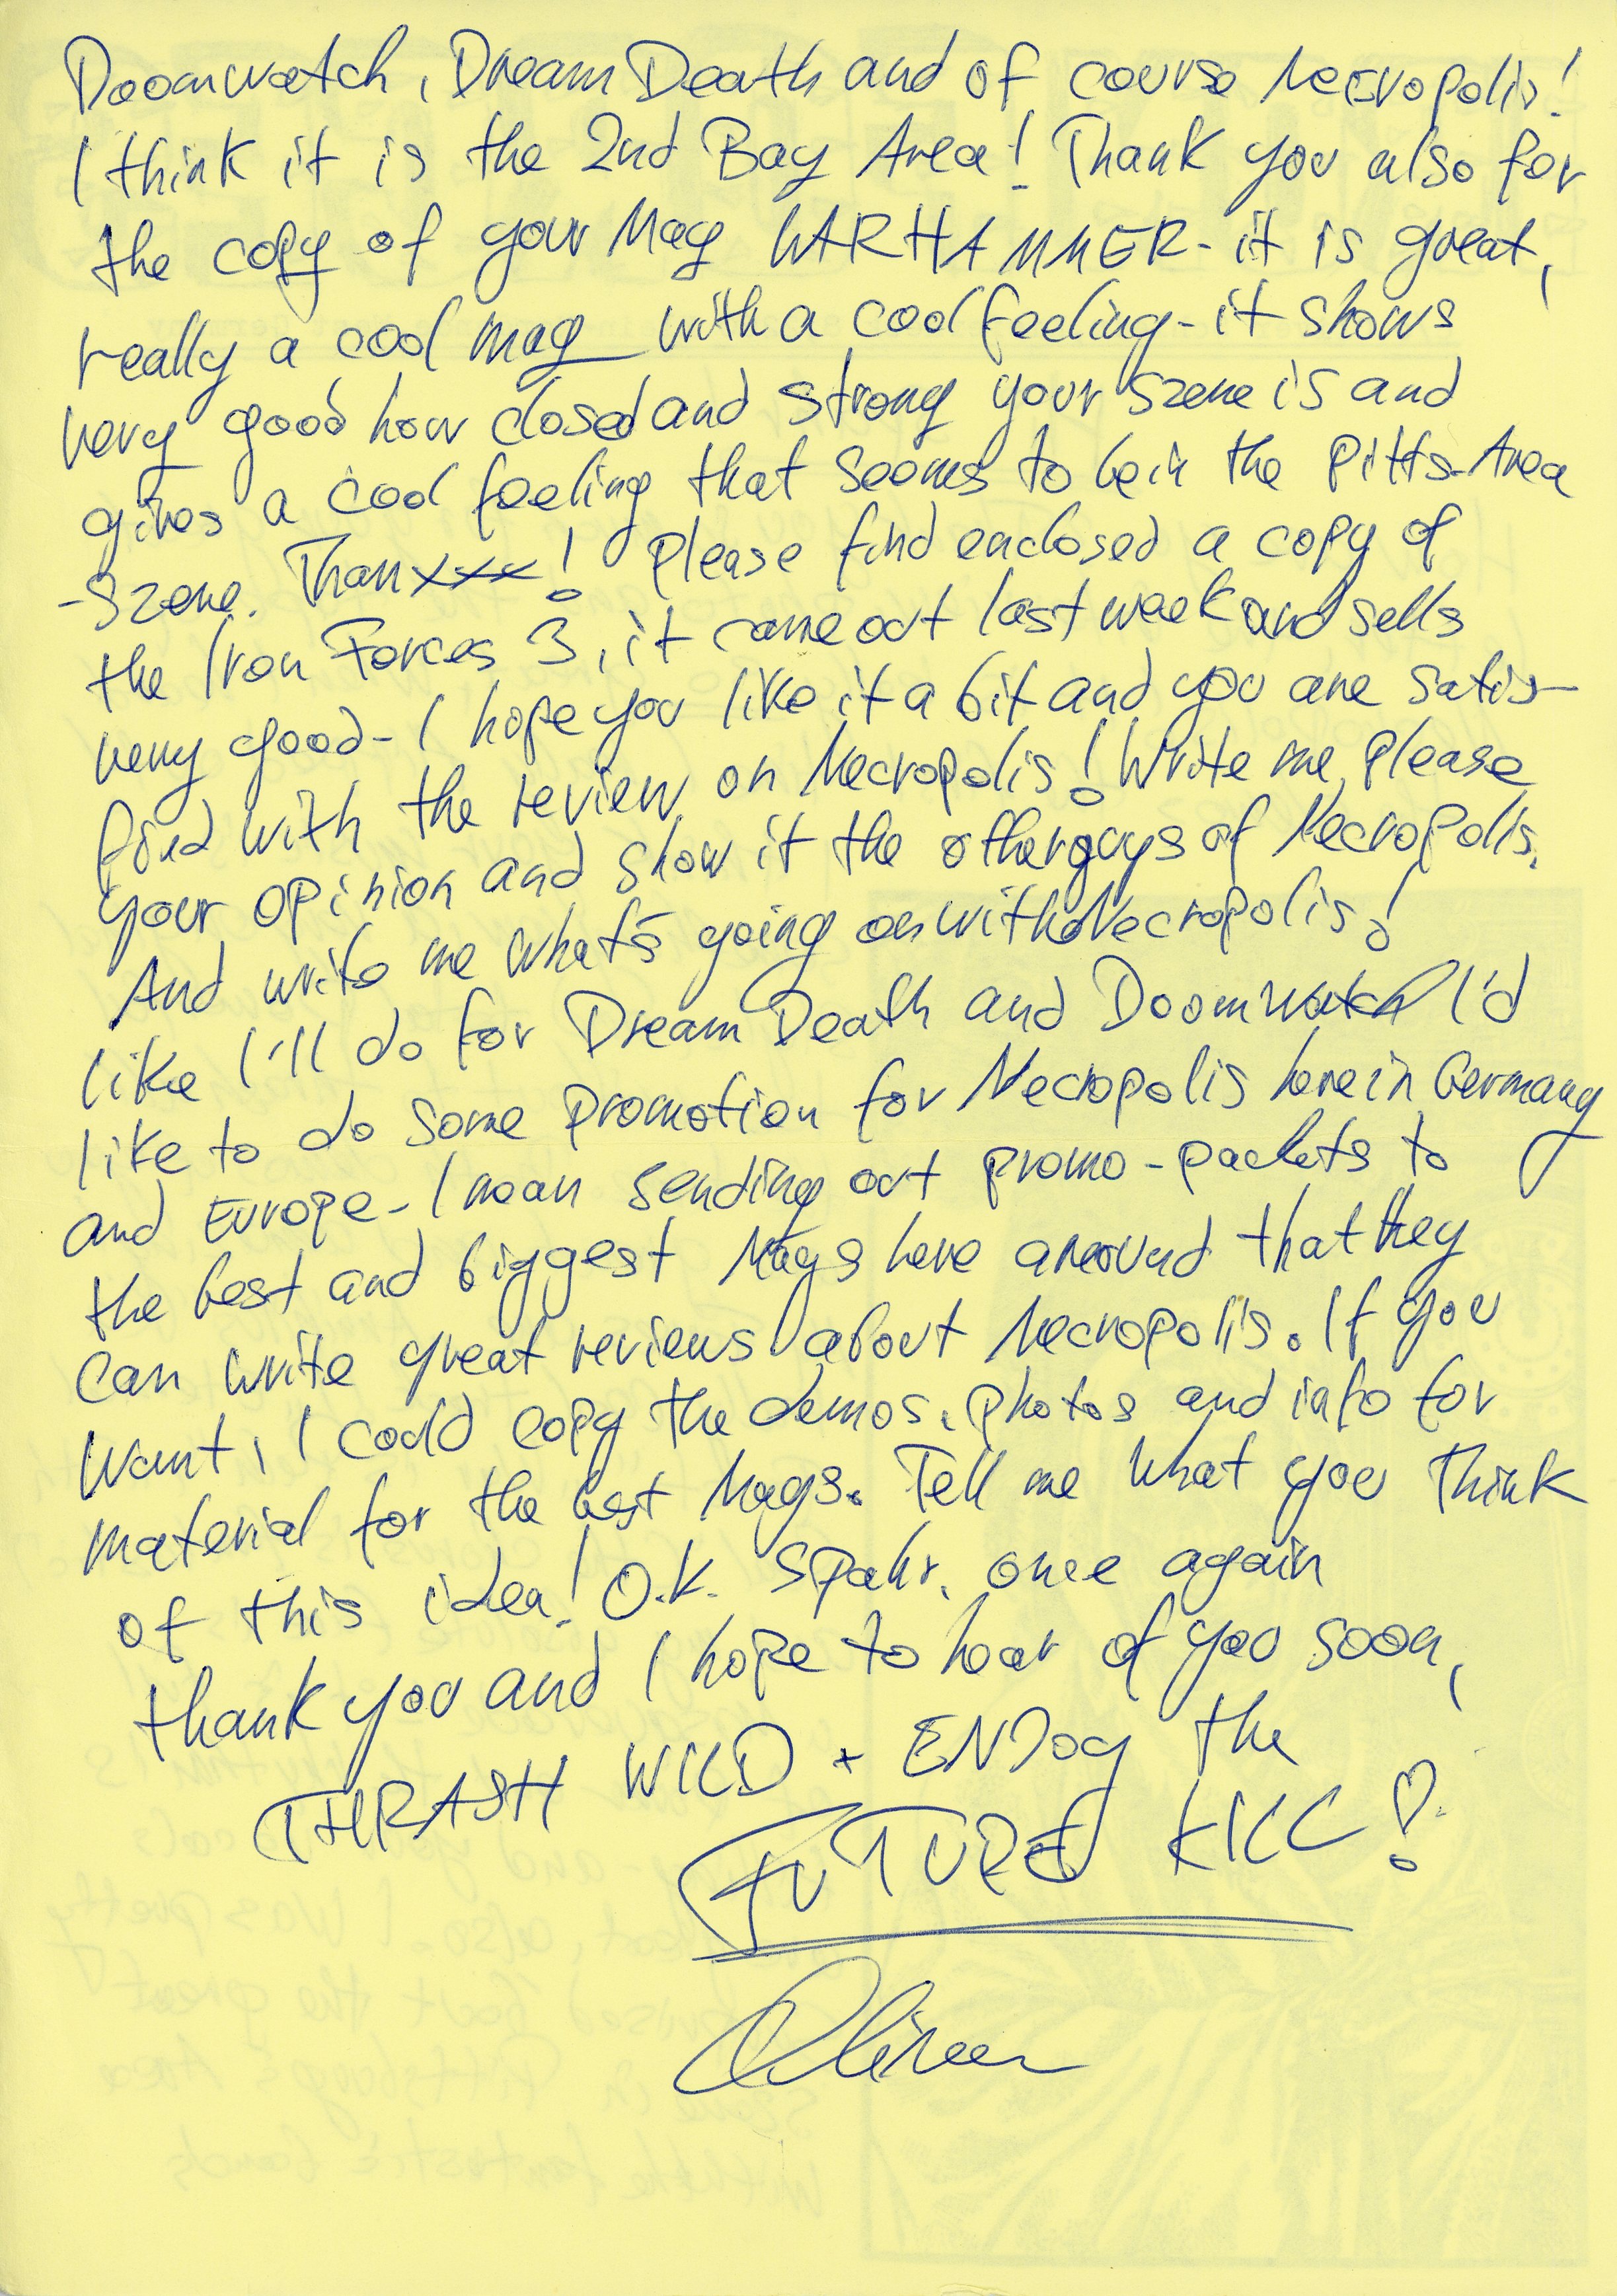 Doomwatch, Dream Death and of course Necropolis!
I think it is the 2nd Bay Area! Thank you also for
the copy of your Mag WARHAMMER - it is great,
really a cool mag with a cool feeling - it shows
very good how closed and strong your szene is and
gives a cool feeling that seems to be in the Pitts-Area
-Szene. Thanxxx! Please find enclosed a copy of
the Iron Forces 3, it came out last week and sells
very good - I hope you like it a bit and you are satis-
fied with the review on Necropolis! Write me, please
your opinion and show it the other guys of Necropolis.
And write me what's going on with Necropolis!
like I'll do for Dream Death and Doomwatch I'd
like to do some promotion for Necropolis here in Germany
and Europe - I mean sending out promo-packets to
the best and biggest Mags here around that they
can write great reviews about Necropolis. If you
want, I could copy the demos, photos and info for
material for the best Mags. Tell me what you think
of this idea! O.K. Spahr, once again
thank you and I hope to hear of you soon,
THRASH WILD + ENJOY the
FUTURE KILL!
Oliver